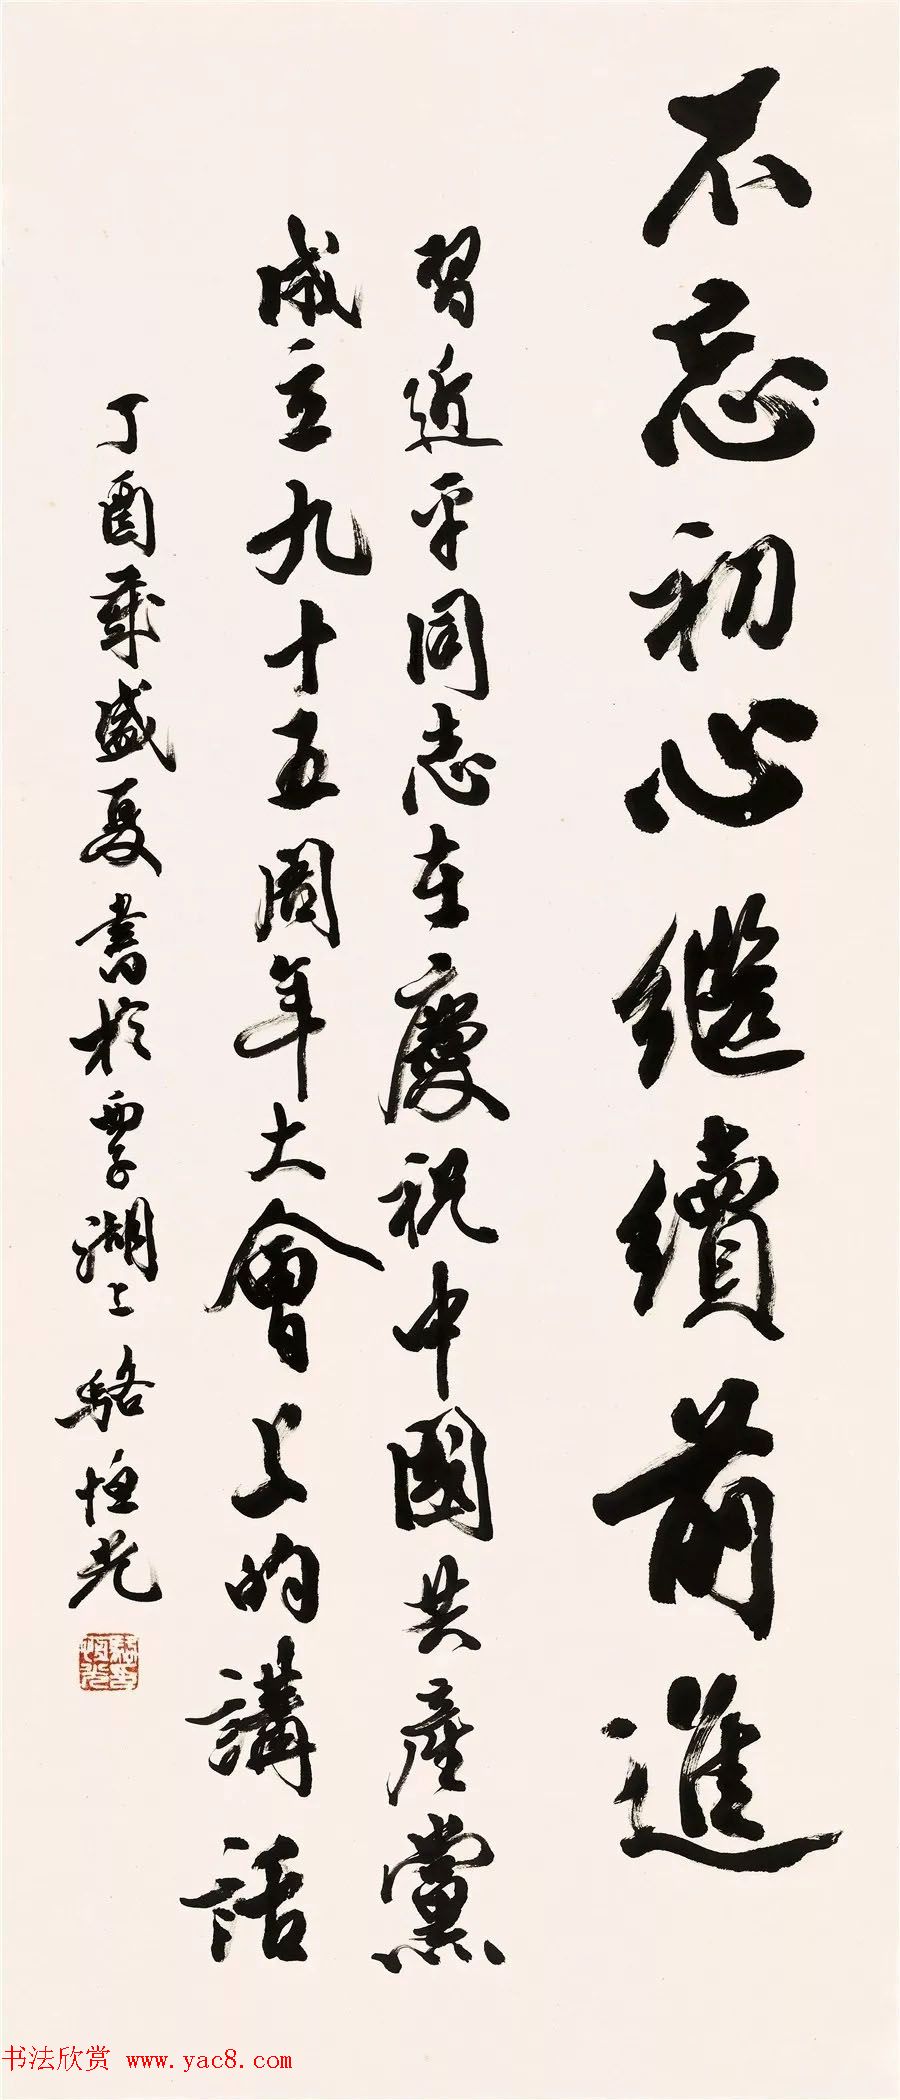 不忘初心继續前進
習近平同志在慶祝中國共産黨
成立九十五周年大會上的講話
丁酉歲盛夏書於西子湖上 駱恒光
书法欣赏 www.yac8.com